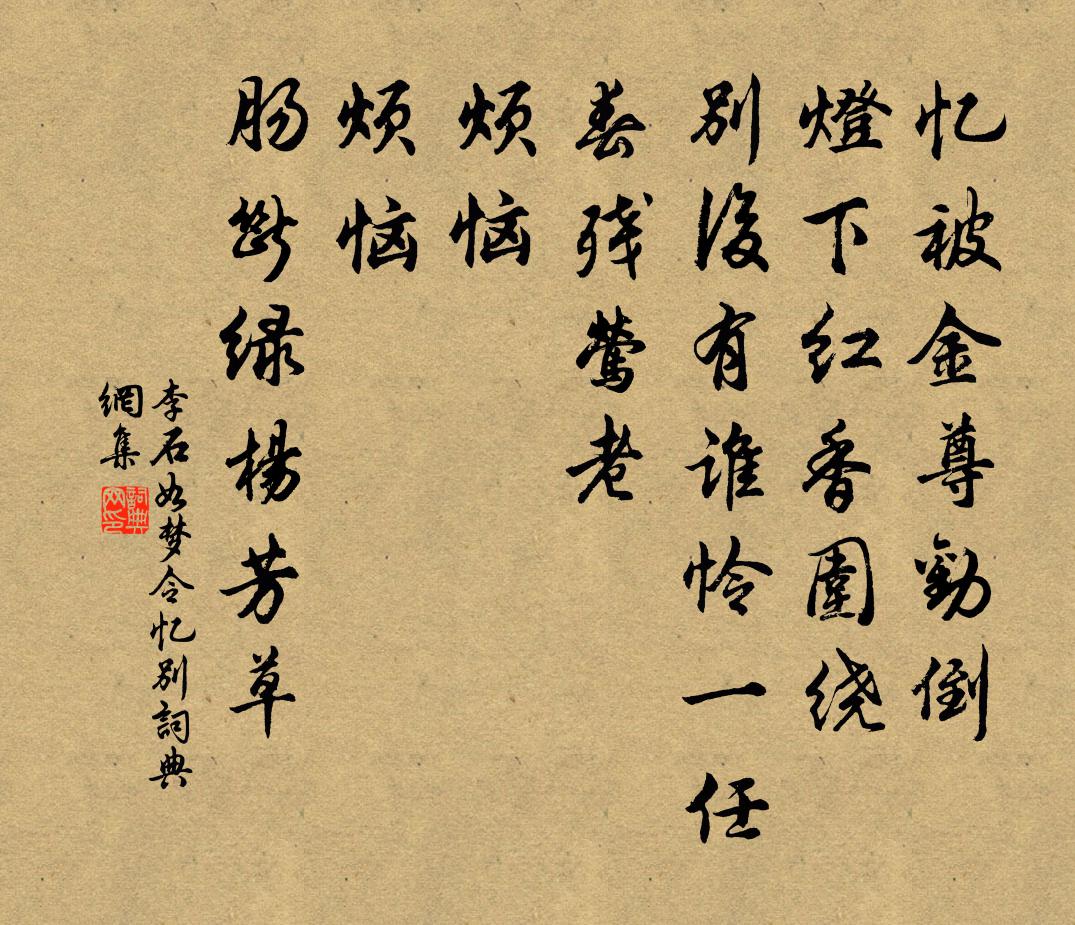 忆被金尊勸倒
燈下红香圍绕
别後有谁怜一任
春残莺老
烦恼
烦恼
肠斷绿楊芳草
李石如梦令忆别詞典
網集
詞典网印